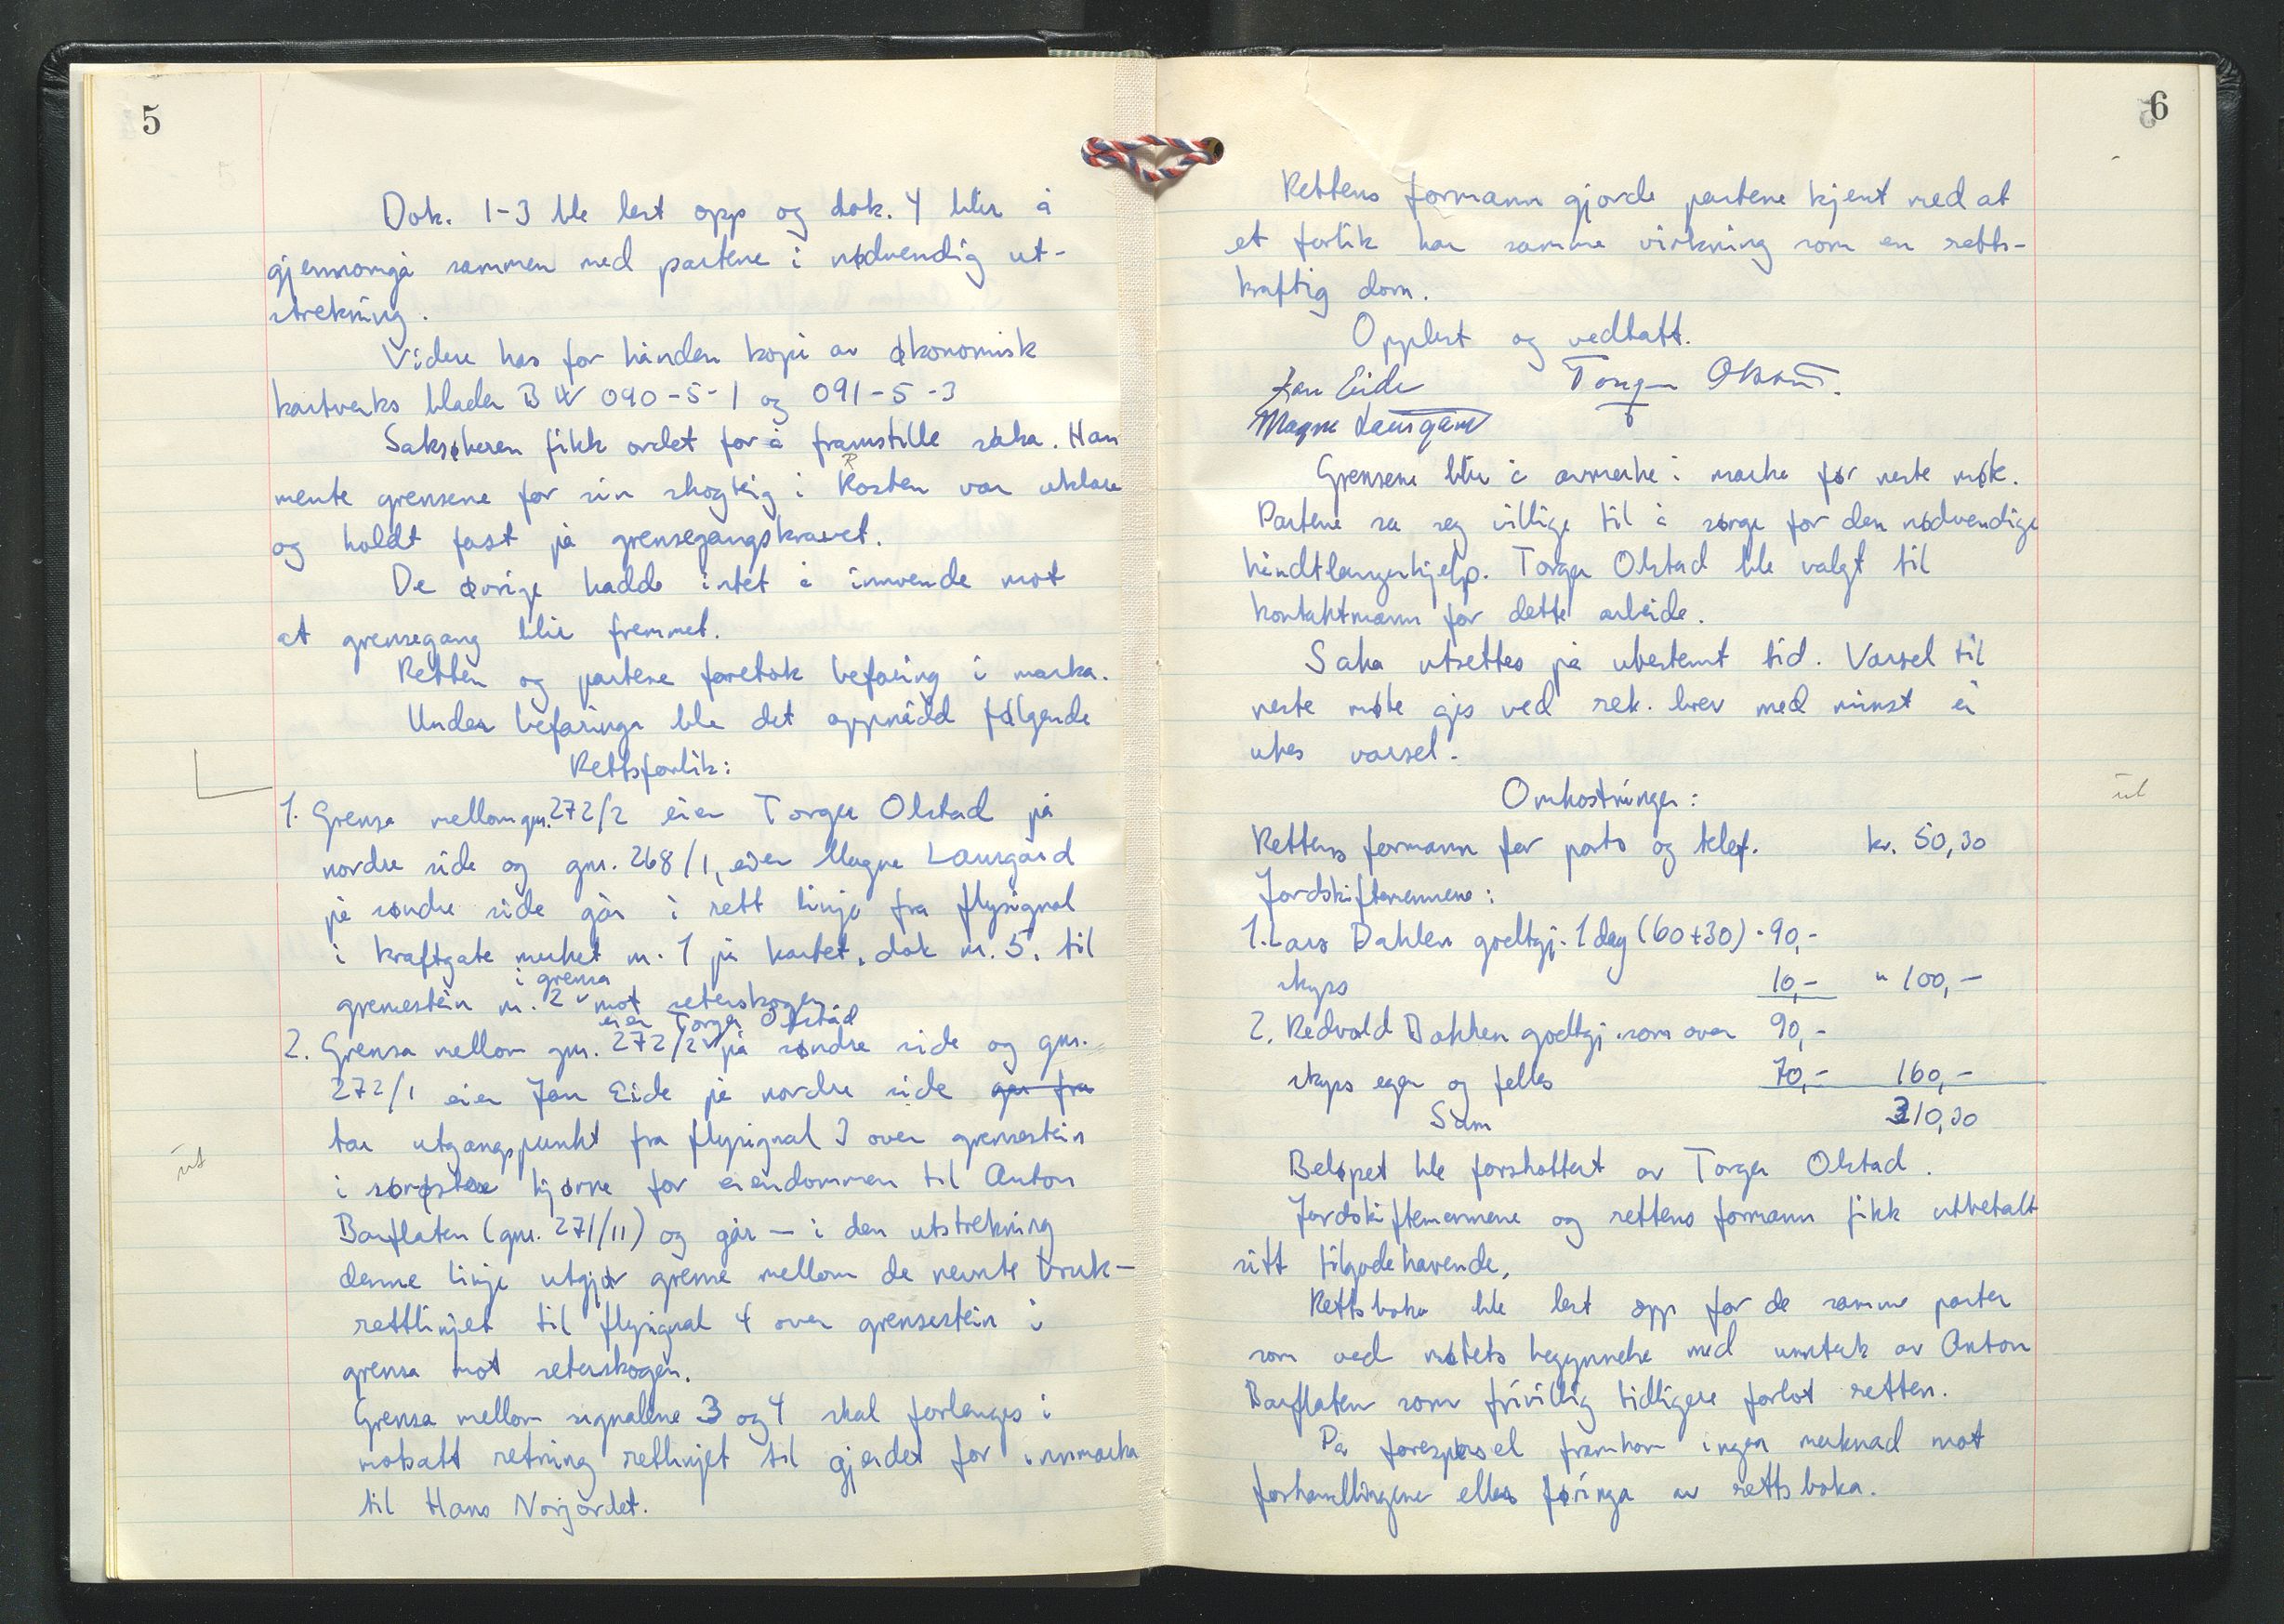 5
Dok. 1-3 ble lest opp og dok. 4 blir å
gjennomgå sammen med partene i nødvendig ut-
strekning.
Videre has for hånden kopi av økonomisk
kartverks blader BW 090-5-1 og 091-5-3
Saksøkeren fikk ordet for å framstille saka. Han
mente grensene for sin skogteig i Rosten var uklare
og holdt fast på grensegangskravet.
De øvrige hadde intet å innvende mot
at grensegang blir fremmet.
Retten og partene foretok befaring i marka.
Under befaringa ble det oppnådd følgende
Rettsforlik:
1. Grensa mellom gnr. 272/2 eier Torger Olstad på
nordre side og gnr. 268/1, eier Magne Laurgård
på søndre side går i rett linje fra flysignal
i kraftgate merket nr. 1 på kartet, dok nr. 5, til
grensestein nr. 2 i grensa mot seterskogen.
2. Grensa mellom gnr. 272/2 eier Torger Olstad på søndre side og gnr.
272/1 eier Jan Eide på nordre side går fra
tar utgangspunkt fra flysignal 3 over grensestein
i sørøstre hjørne for eiendommen til Anton
Barflaten (gnr. 271/11) og går – i den utstrekning
denne linje utgjør grense mellom de nevnte bruk –
rettlinjet til flysignal 4 over grensestein i
grensa mot seterskogen.
Grensa mellom signalene 3 og 4 skal forlenges i
motsatt retning rettlinjet til gjerdet for innmarka
til Hans Norjordet.
ut
6
Rettens formann gjorde partene kjent med at
et forlik har samme virkning som en retts-
kraftig dom.
Opplest og vedtatt.
Jan Eide Torger Olstad.
Magne Laurgård
Grensene blir å avmerke i marka før neste møte.
Partene sa seg villige til å sørge for den nødvendige
håndtlangerhjelp. Torger Olstad ble valgt til
kontaktmann for dette arbeide.
Saka utsettes på ubestemt tid. Varsel til
neste møte gis ved rek. brev med minst ei
ukes varsel.
Omkostninger:
ut
Rettens formann for porto og telef. kr. 50,30
Jordskiftemennene:
1. Lars Dahlen godtgj. 1 dag (60+30) · 90,-
skyss 10,- " 100,-
2. Redvald Bakken godtgj. som over 90,-
skyss egen og felles 70,- 160,-
Sum 310,30
Beløpet ble forskottert av Torger Olstad.
Jordskiftemennene og rettens formann fikk utbetalt
sitt tilgodehavende.
Rettsboka ble lest opp for de samme parter
som ved møtets begynnelse med unntak av Anton
Barflaten som frivillig tidligere forlot retten.
På forespørsel framkom ingen merknad mot
forhandlingene eller føringa av rettsboka.